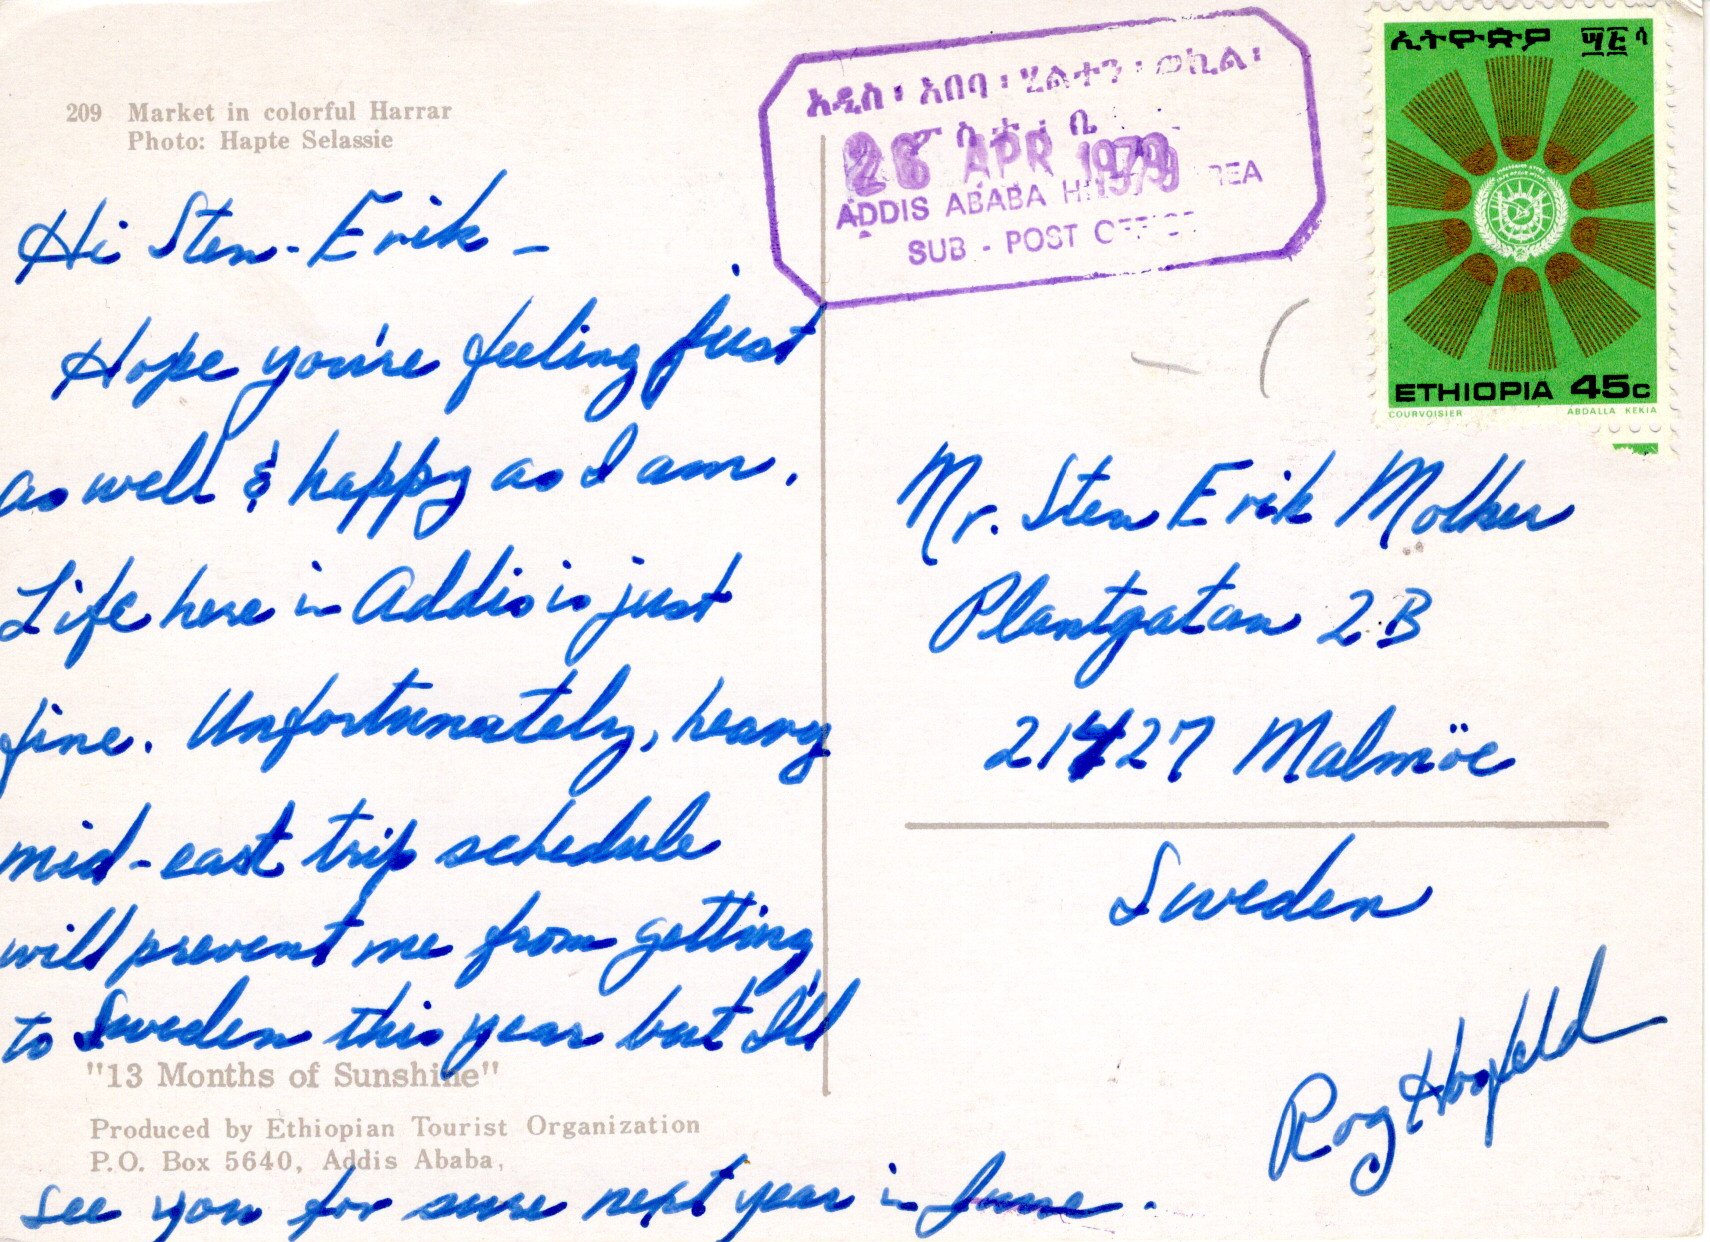 209 Market in colorful Harrar
Photo: Hapte Selassie
Hi Sten-Erik -
Hope you're feeling just
as well & happy as I am.
Life here in Addis is just
fine. Unfortunately, heavy
mid-east trip schedule
will prevent me from getting
to Sweden this year but I'll
"13 Months of Sunshine"
Produced by Ethiopian Tourist Organization
P.O. Box 5640, Addis Ababa,
see you for sure next year in June.
አዲስ፡ አበባ፡ ሂልተን፡ ወኪል፡
ፖስታ፡ ቤ
26 APR 1979
ADDIS ABABA
SUB - POST OFFICE
ኢትዮጵያ ፵፭ ሳ
ETHIOPIA 45c
COURVOISIER ABDALLA KEKIA
Mr. Sten Erik Molker
Plantgatan 2B
21427 Malmöe
Sweden
Roy Hoofeld